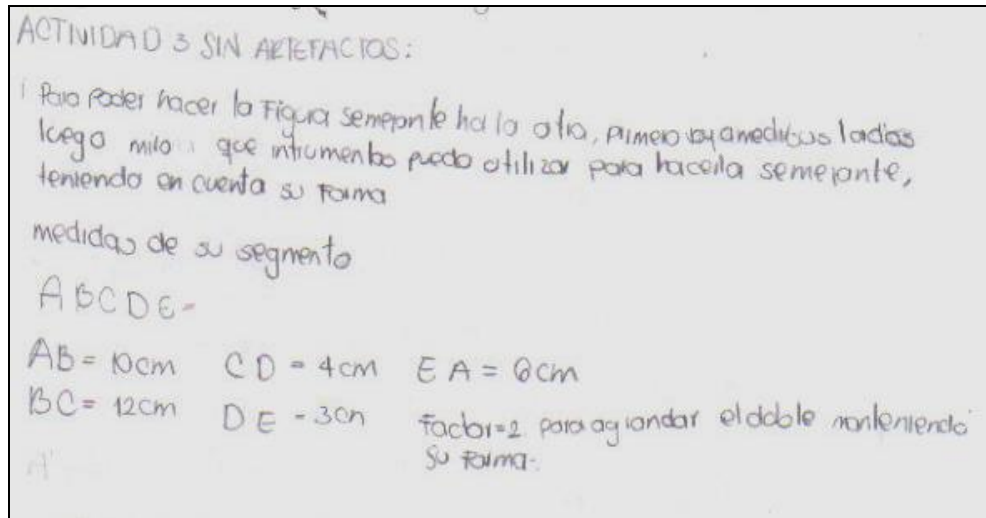 ACTIVIDAD 3 SIN ARTEFACTOS:
Para Poder hacer la Figura semejante ha la otra, primero voy a medir sus lados
luego miro que intrumentos puedo utilizar para hacerla semejante,
teniendo en cuenta su Forma
medidas de su segmento
ABCDE=
AB = 10cm CD = 4cm EA = 6cm
BC = 12cm DE = 3cn Factor=2 para agrandar el doble manteniendo
su Forma.
A'